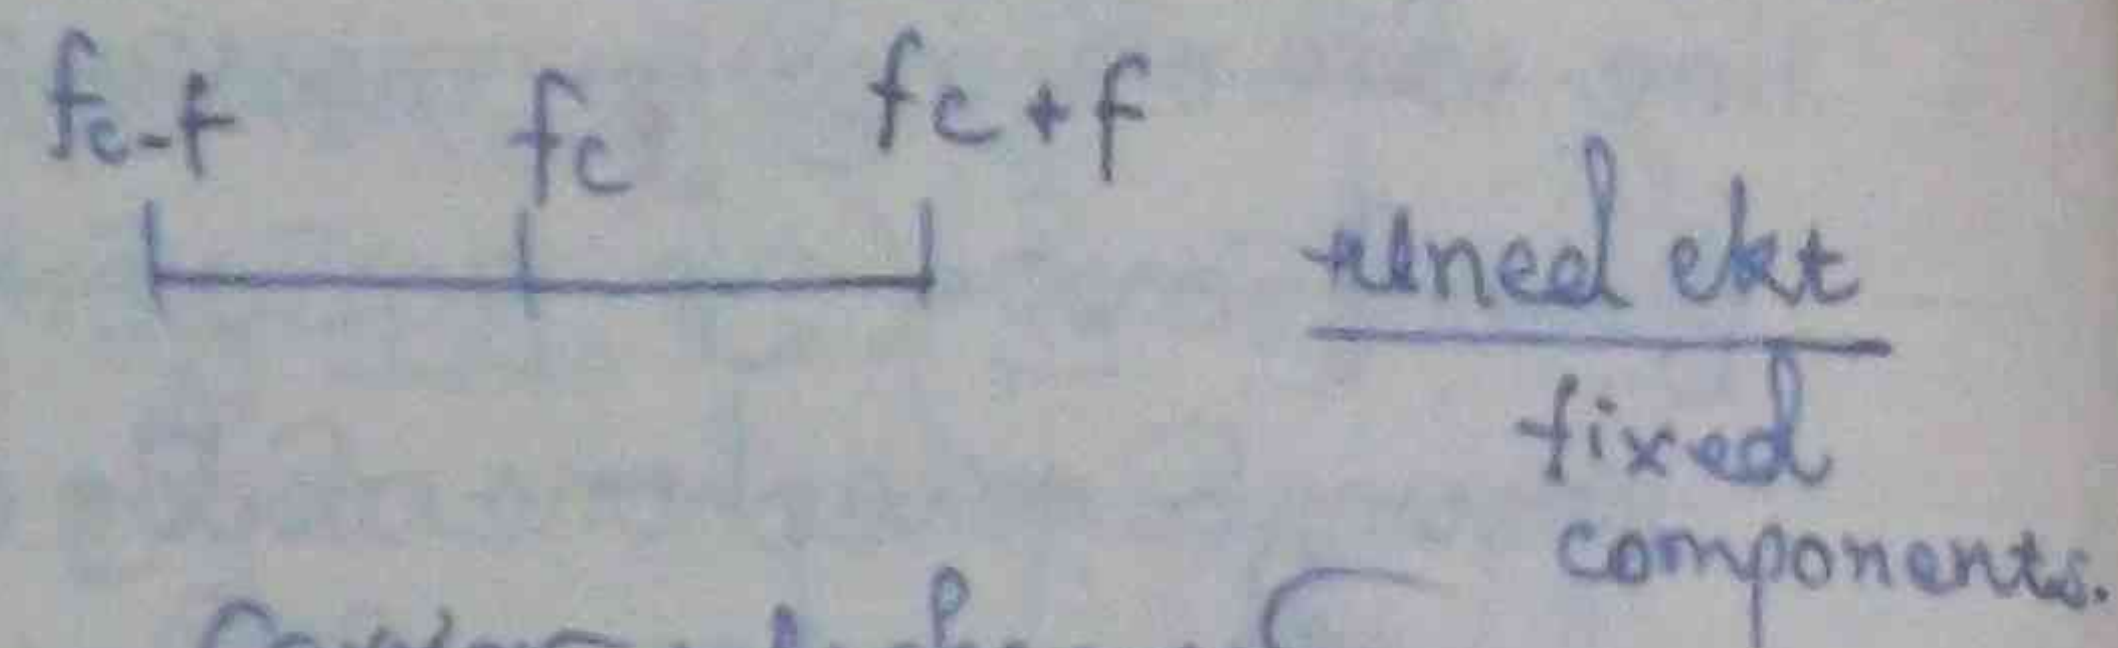 fc-f fc fc+f
tuned ckt
fixed
components.